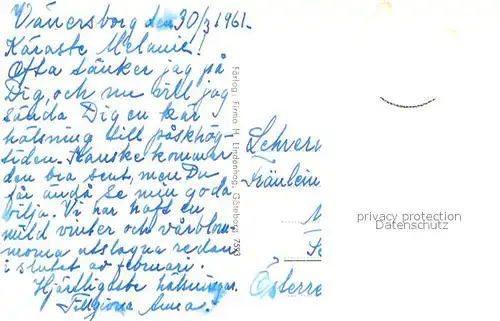 Vänersborg den 30/3 1961.
Käraste Melanie!
Ofta tänker jag på
Dig, och nu vill jag
sända Dig en kär
hälsning till påskhög-
tiden. Kanske kommer
den bra sent, men Du
får ändå se min goda
vilja. Vi har haft en
mild vinter och vårblom-
morna utslagna redan
i slutet av februari.
Hjärtligaste hälsningar
Tillgivna Anna.
Förlag: Firma H. Lindenhag, Göteborg. 7593
Lehrer
Fräulein
Österre
privacy protection
Datenschutz